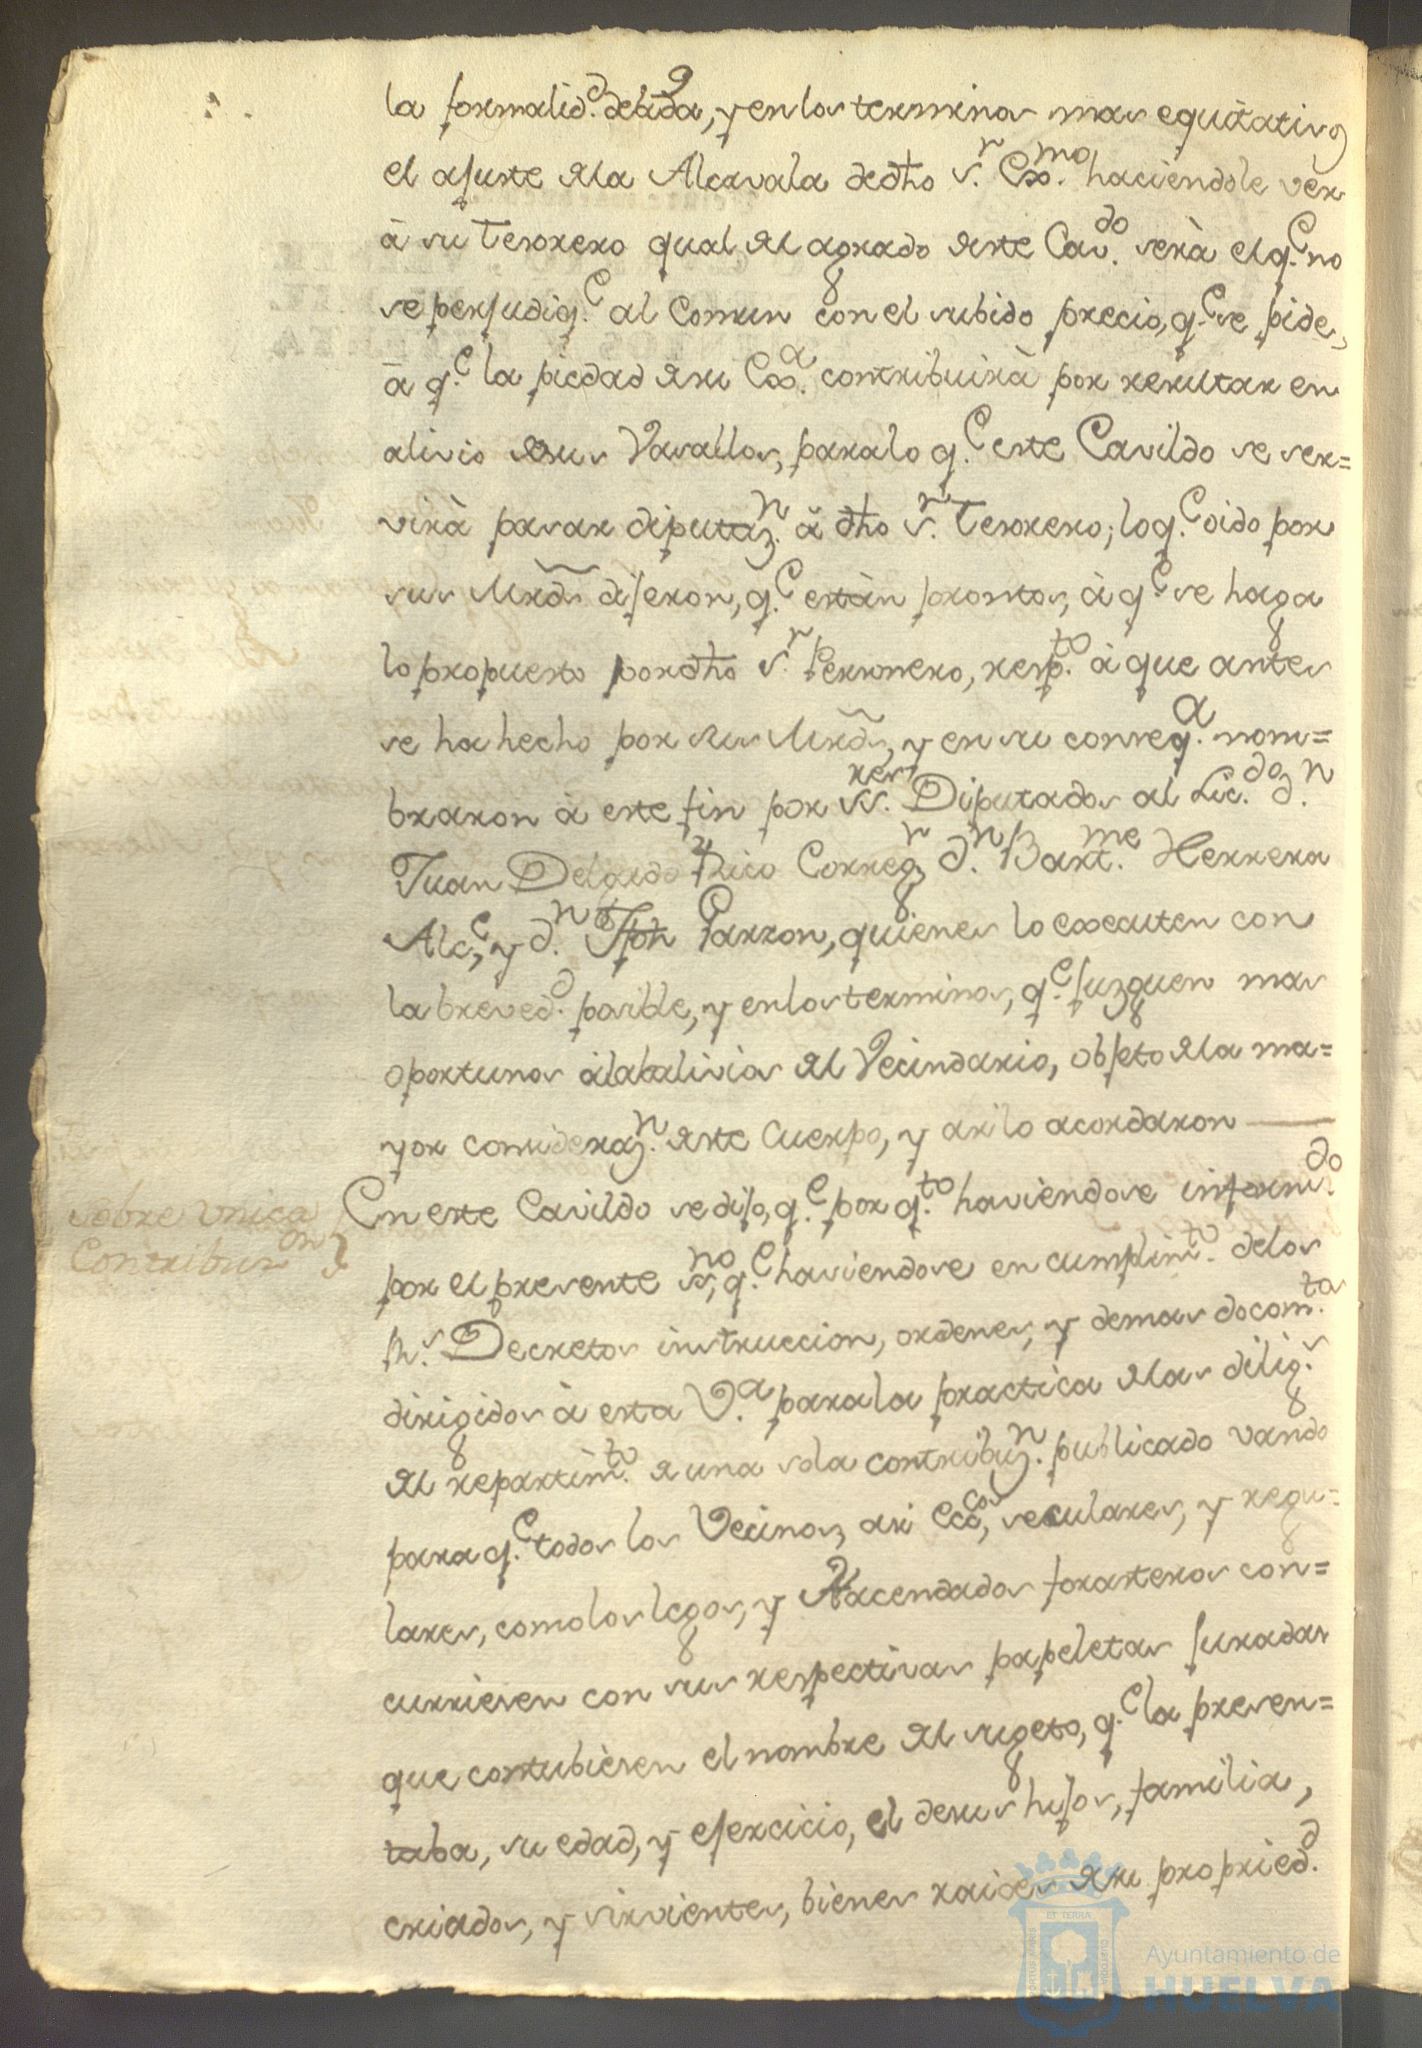 la formalid.d debida, y en los terminos mas equitativos
el ajuste de la Alcavala de dho S.r Exmo. haciendole ver
à su Tesorero qual del agrado de este Cav.do serà el q.e no
se perjudiq.e al Comun con el subido precio, q.e se pide,
à q.e la piedad de su Ex.a contribuirà por resultar en
alivio de sus Vasallos, para lo q.e este Cavildo se ser=
virà pasar diputaz.n à dho S.r Tesorero; lo q.e oido por
sus Mrds dijeron, q.e estàn promtos, à q.e se haga
lo propuesto por dho S.r Personero, resp.to à que antes
se ha hecho por sus Mrds, y en su conseq.a nom=
braron à este fin por SS.res Diputados al Lic.do d.n
Juan Delgado Rico Correg.r d.n Bart.me Herrera
Alc.e, y d.n Jph Garzon, quienes lo executen con
la breved.d posible, y en los terminos, q.e juzguen mas
oportunos al alivio del Vecindario, objeto de la ma=
yor consideraz.n de este Cuerpo, y asi lo acordaron
Sobre Unica
Contribus.on
En este Cavildo se dijo, q.e por q.to haviendose inform.do
por el presente ss.no, q.e haviendose en cumplim.to de los
R.s Decretos instruccion, ordenes, y demas docom.tos
dirigidos à esta V.a para la practica de las dilig.s
del repartim.to de una sola contribuz.n publicado vando
para q.e todos los Vecinos, asi ecc.cos, seculares, y regu=
lares, como los legos, y Hacendados forasteros con=
currieren con sus respectivas papeletas juradas
que contubiesen el nombre del sugeto, q.e la presen=
taba, su edad, y ejercicio, el de sus hijos, familia,
criados, y sirvientes, bienes raices de su propried.d
ET TERRA
Ayuntamiento de
HUELVA